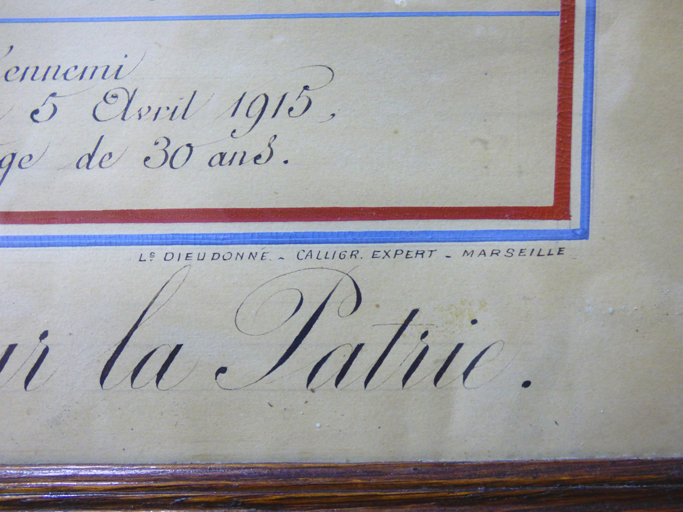 l'ennemi
5 Avril 1915,
ge de 30 ans.
Ls DIEUDONNÉ. - CALLIGR. EXPERT - MARSEILLE
ur la Patrie.